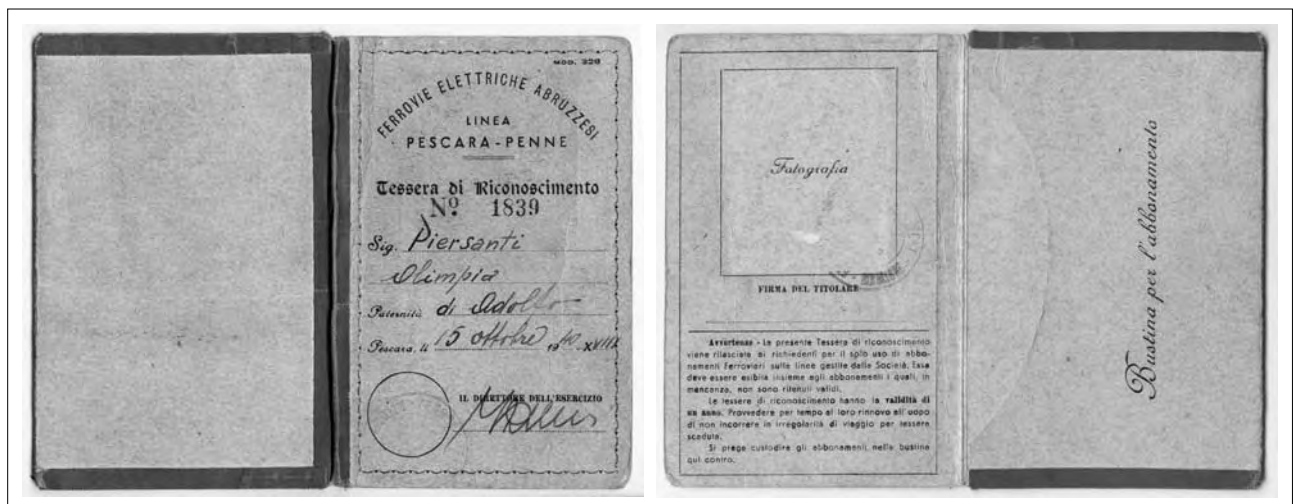 MOD. 226
FERROVIE ELETTRICHE ABRUZZESI
LINEA
PESCARA-PENNE
Tessera di Riconoscimento
Nº 1839
Sig. Piersanti
Olimpia
Paternità di Adolfo
Pescara, li 15 ottobre 1940 XVIII
IL DIRETTORE DELL'ESERCIZIO
Fotografia
FIRMA DEL TITOLARE
Avvertenze - La presente Tessera di riconoscimento
viene rilasciata ai richiedenti per il solo uso di abbo-
namenti Ferroviari sulle linee gestite dalla Società. Essa
deve essere esibita insieme agli abbonamenti i quali, in
mancanza, non sono ritenuti validi.
Le tessere di riconoscimento hanno la validità di
un anno. Provvedere per tempo al loro rinnovo all'uopo
di non incorrere in irregolarità di viaggio per tessera
scaduta.
Si prega custodire gli abbonamenti nella bustina
qui contro.
Bustina per l'abbonamento